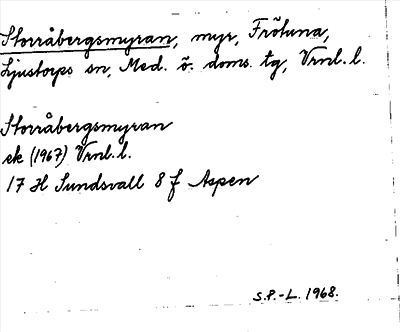 Storråbergsmyran, myr, Frötuna,
Ljustorps sn, Med. ö. doms. tg, Vrnl. l.
Storråbergsmyran
ek (1967) Vrnl. l.
17 H Sundsvall 8 f Aspen
S.P.-L. 1968.